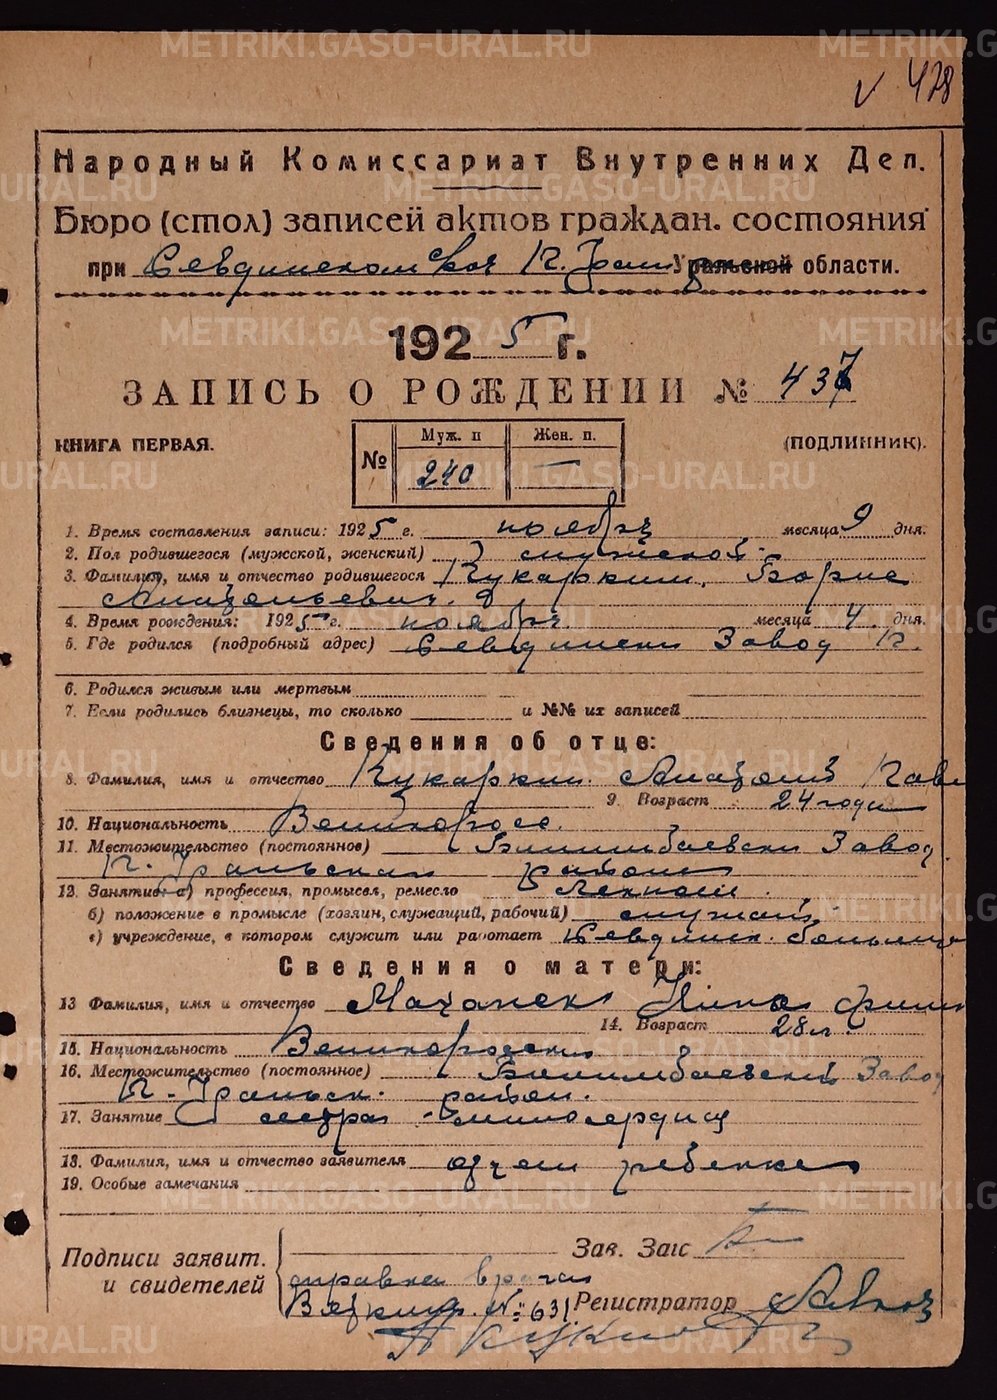 V 478
Народный Комиссариат Внутренних Дел.
Бюро (стол) записей актов граждан. состояния
при Ревдинском Уральской области.
1925 г.
ЗАПИСЬ О РОЖДЕНИИ № 437
КНИГА ПЕРВАЯ. (ПОДЛИННИК).
№ Муж. п Жен. п.
240 —
1. Время составления записи: 1925 г. ноября месяца 9 дня.
2. Пол родившегося (мужской, женский) мужской
3. Фамилия, имя и отчество родившегося Кукаркин. Борис
Анатольевич
4. Время рождения: 1925 г. ноября месяца 4 дня.
5. Где родился (подробный адрес) Ревдинский Завод
6. Родился живым или мертвым
7. Если родились близнецы, то сколько и №№ их записей
Сведения об отце:
8. Фамилия, имя и отчество Кукаркин Анатолий Павл
9. Возраст 24 года
10. Национальность Великоросс.
11. Местожительство (постоянное) Билимбаевский Завод.
П. Уральский района
12. Занятие: а) профессия, промысел, ремесло Лекпом.
б) положение в промысле (хозяин, служащий, рабочий) служащ.
в) учреждение, в котором служит или работает Ревдинск. больниц
Сведения о матери:
13 Фамилия, имя и отчество Нина
14. Возраст 28 л.
15. Национальность Великоросска
16. Местожительство (постоянное) Билимбаевский Завод
П. Уральск. район.
17. Занятие сестра милосердия
18. Фамилия, имя и отчество заявителя отец ребенка
19. Особые замечания
Подписи заявит. и свидетелей
справка врача
№ 631.
Зав. Загс
Регистратор
METRIKI.GASO-URAL.RU